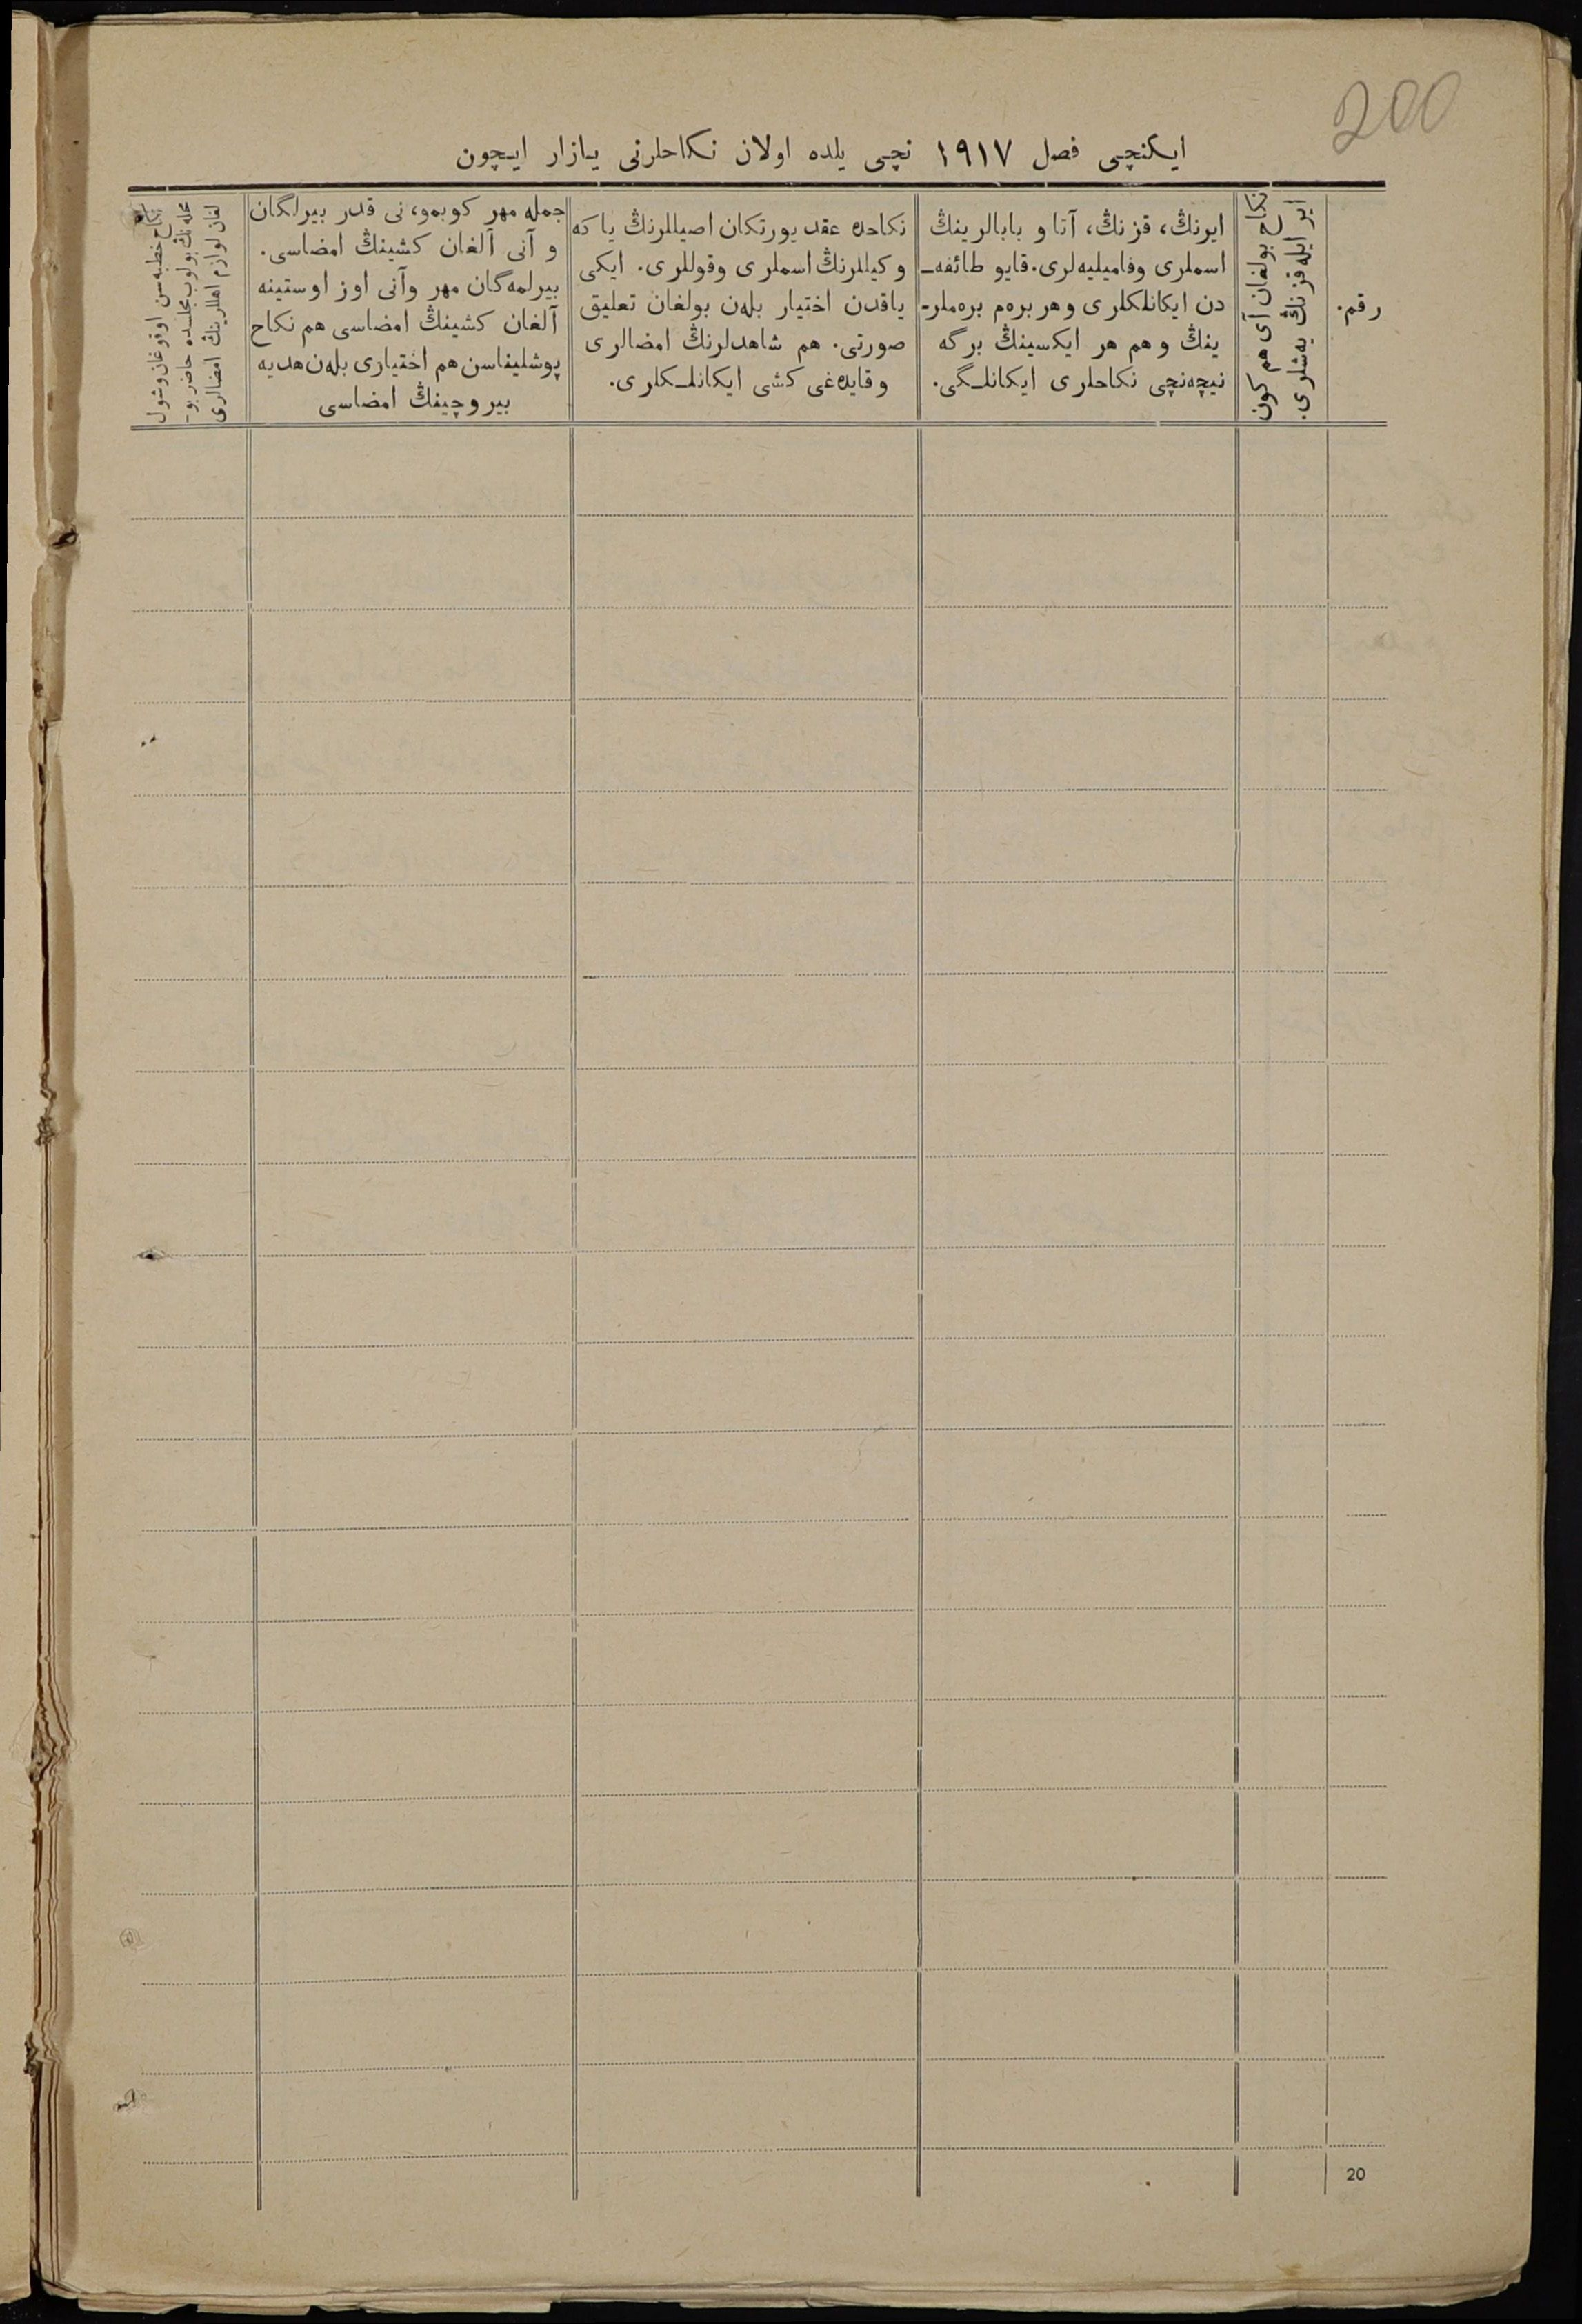 200
ایكنچی فصل ١٩١٧ نچی یلده اولان نكاحلرنی یازار ایچون
رقم.
نكاح بولغان آی هم كون
ایر ایله قزنڭ یه‌شلری.
ایرنڭ، قزنڭ، آتا و بابالرینڭ
اسملری وفامیلیه‌لری. قایو طائفه‌ـ
دن ایكانلكلری وهر بره‌م بره‌ملرـ
ینڭ وهم هر ایكسینڭ برگه
نیچه‌نچی نكاحلری ایكانلـگی.
نكاحده عقد یورتكان اصیللرنڭ یا كه
وكیللرنڭ اسملری وقوللری. ایكی
یاقدن اختیار بله‌ن بولغان تعلیق
صورتی. هم شاهدلرنڭ امضالری
وقایده‌غی كشی ایكانلـكلری.
جمله مهر كوبمو، نی قدر بیرلگان
و آنی آلغان كشینڭ امضاسی.
بیرلمه‌گان مهر وآنی اوز اوستینه
آلغان كشینڭ امضاسی هم نكاح
پوشلیناسن هم اختیاری بله‌ن هدیه
بیروچینڭ امضاسی
نكاح خطبه‌سن اوقوغان وشول
محله‌نڭ بولوب مجلسده حاضر بوـ
لغان لوازم اهللرینڭ امضالری
20